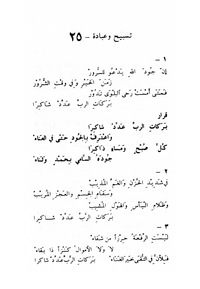 تسبيح وعبادة - ٢٥
١ -
إنّ جُودَ اللهِ يَدْعُو للسُّرُورْ
زَمَنَ الخَيْرِ وفي وقتِ الشُّرُورْ
فَمَتَى أَمْسَتْ رَحَى البَلْوَى تَدُورْ
بَرَكاتِ الرَّبِّ عَدِّدْ شَاكِرًا
قرار
بَرَكاتِ الرَّبِّ عَدِّدْ شاكِرًا
وَاعْتَرِفْ بالجُودِ حتَّى في العَنَاءْ
كُلَّ صُبْحٍ وَمَسَاءٍ ذَاكِرًا
جُودَهُ السَّامي بِحَمْدٍ وَثَنَاءْ
٢ -
في شَدِيدِ الحُزْنِ والغَمِّ المُذِيبْ
وَسَقَامِ الجِسْمِ والعَجْزِ المُرِيبْ
وَظَلامِ اليَأْسِ والهَوْلِ المُشِيبْ
بَرَكاتِ الرَّبِّ عَدِّدْ شاكِرًا
٣ -
لَيْسَتِ الرِّفْعَةُ خَيْرًا من شَقَاءْ
لا ولا الأموالُ كَنْزًا ذا بَقَاءْ
بَرَكاتِ الرَّبِّ عَدِّدْ شاكِرًا